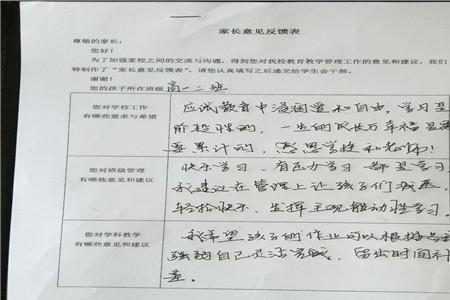 家长意见反馈表
尊敬的家长：
您好！
为了加强家校之间的交流与沟通，得到您对我校教育教学管理工作的意见和建议，我们
特制作了“家长意见反馈表”，请您认真填写之后递交给学生会干部。
谢谢！
您的孩子所在班级高一二班
您对学校工作
有哪些要求与希望
应试教育中浸润爱和自由，学习是
阶段性的，一生的成长万幸福是需
要累计的，感恩学校和老师！
您对班级管理
有哪些意见和建议
快乐学习，有压力学习都是学习
我建议在管理上让孩子们减压，
轻松快乐，发挥主观能动性学习
您对学科教学
有哪些意见和建议
我希望孩子的作业可以根据
强弱自己灵活完成，留出时间补
差。